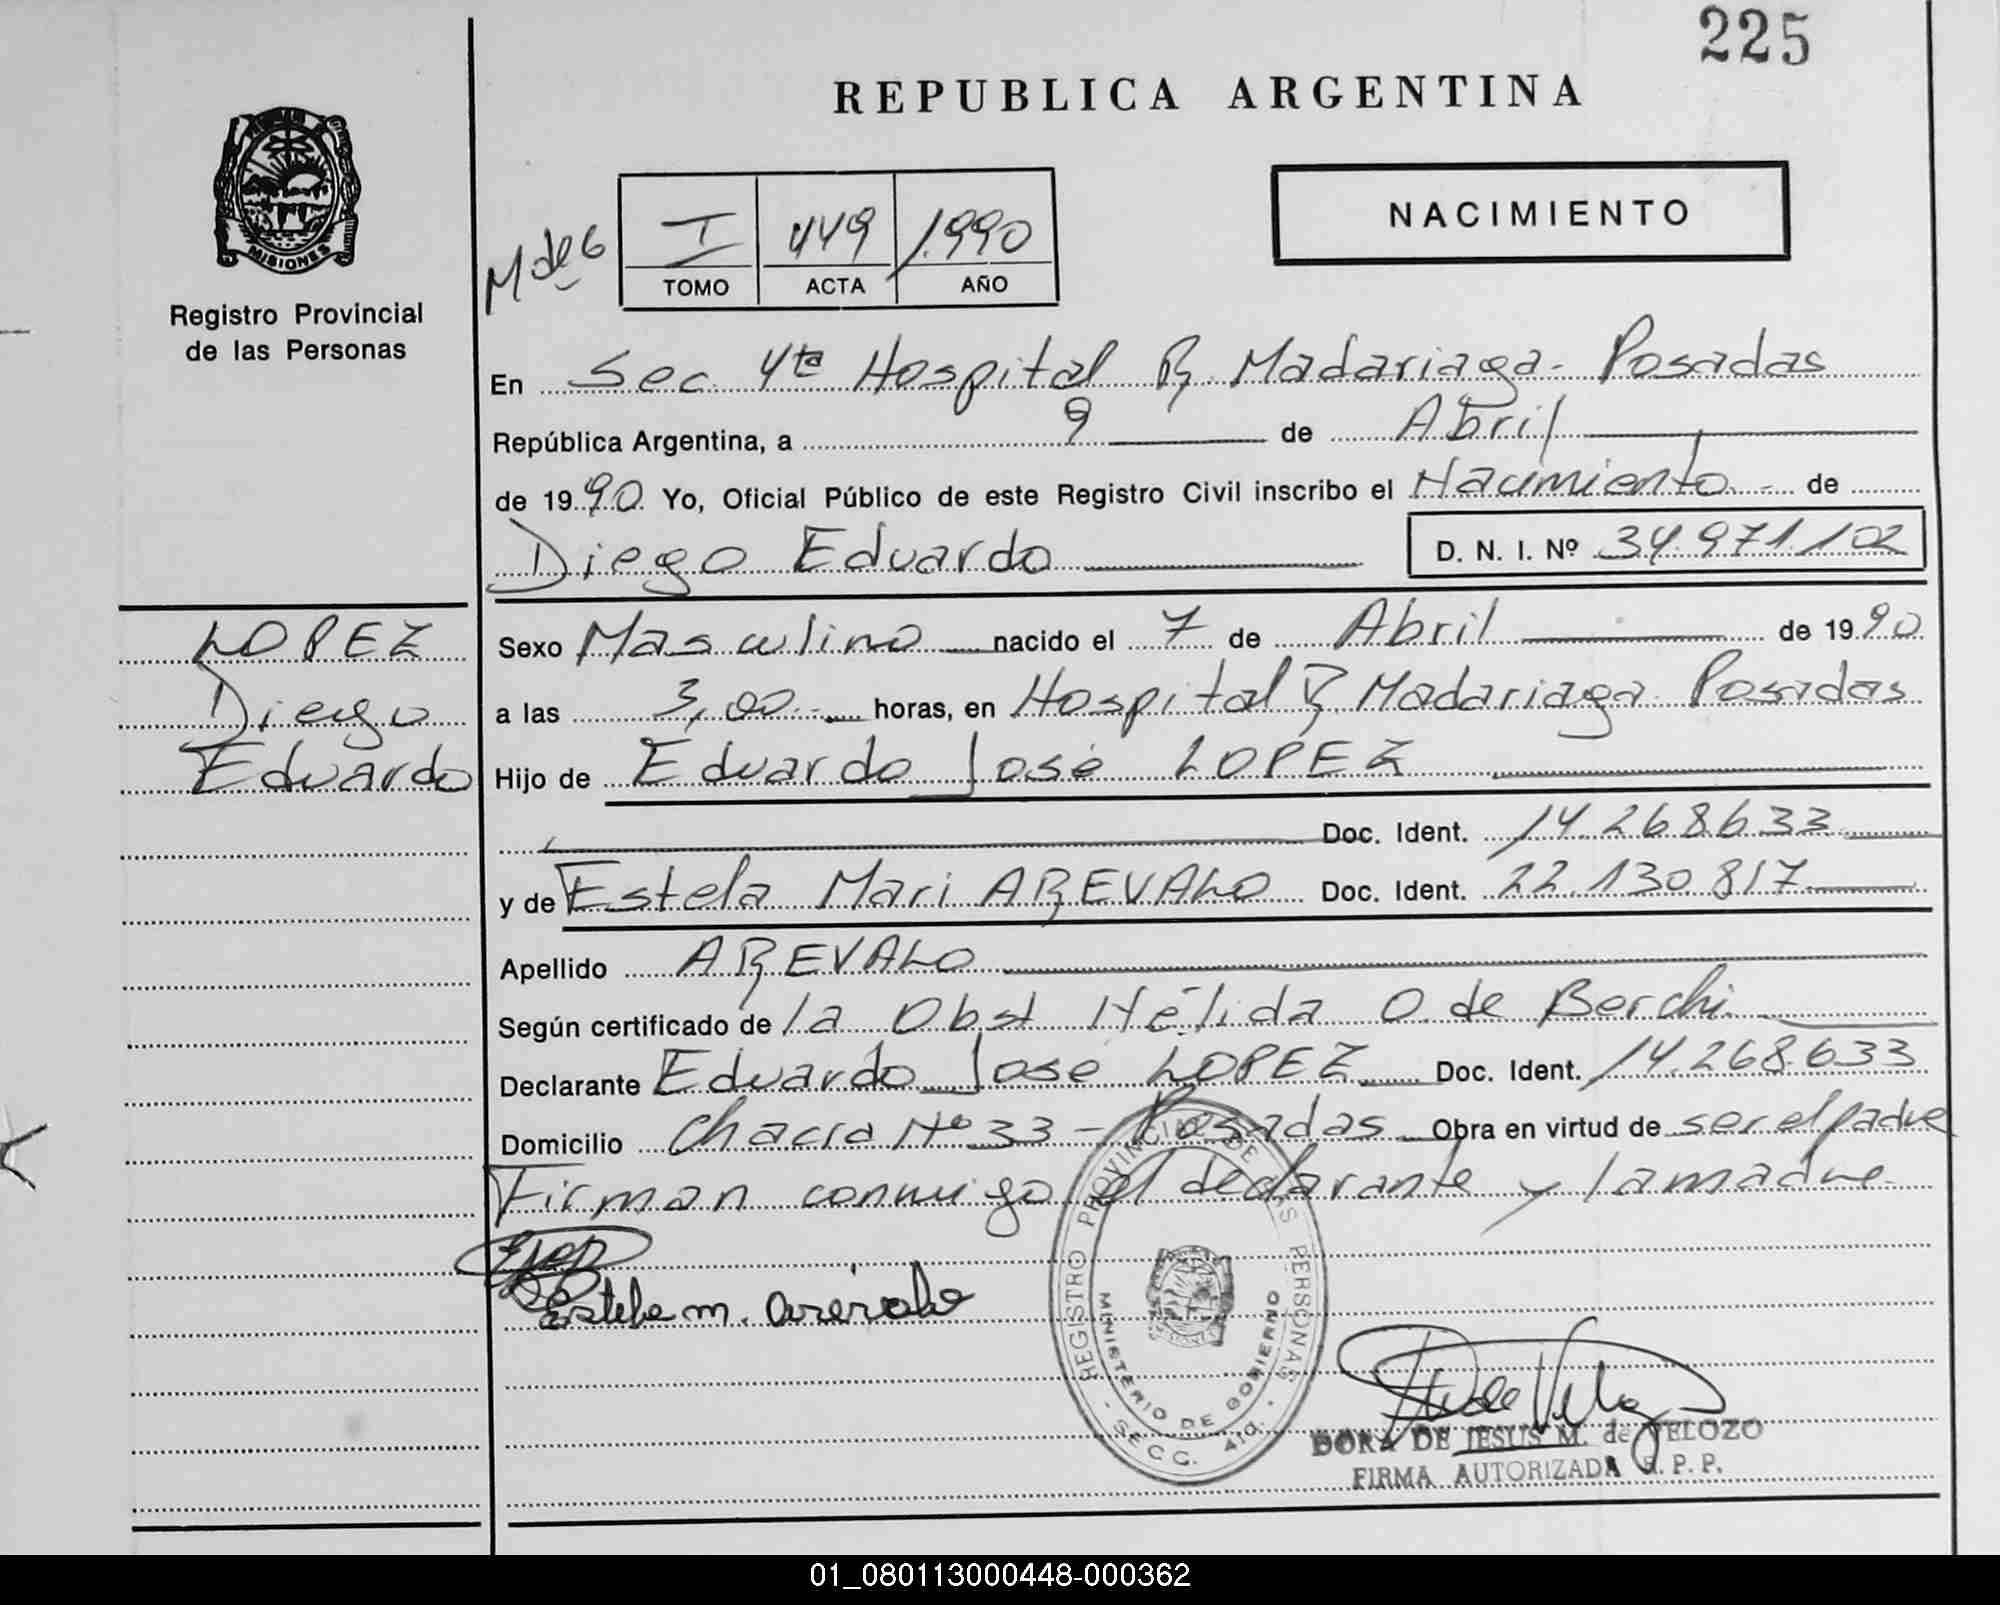 225
REPUBLICA ARGENTINA
MISIONES
Registro Provincial
de las Personas
M de G
I 449 1.990
TOMO ACTA AÑO
NACIMIENTO
En Sec. 4ta Hospital R. Madariaga - Posadas
República Argentina, a 9 de Abril
de 1990 Yo, Oficial Público de este Registro Civil inscribo el Nacimiento de
Diego Eduardo D. N. I. Nº 34.971.102
LOPEZ
Diego
Eduardo
Sexo Masculino nacido el 7 de Abril de 1990
a las 3,00 horas, en Hospital R. Madariaga Posadas
Hijo de Eduardo José LOPEZ
Doc. Ident. 14.268.633
y de Estela Mari AREVALO Doc. Ident. 22.130.817
Apellido AREVALO
Según certificado de la Obst Nélida O. de Berchi
Declarante Eduardo José LOPEZ Doc. Ident. 14.268.633
Domicilio Chacra Nº 33 - Posadas Obra en virtud de ser el padre
Firman conmigo el declarante y la madre.
Estela m. arévalo
REGISTRO PROVINCIAL DE LAS PERSONAS
MINISTERIO DE GOBIERNO
- SECC. 4ta. -
DORA DE JESUS M. de VELOZO
FIRMA AUTORIZADA R. P. P.
01_080113000448-000362